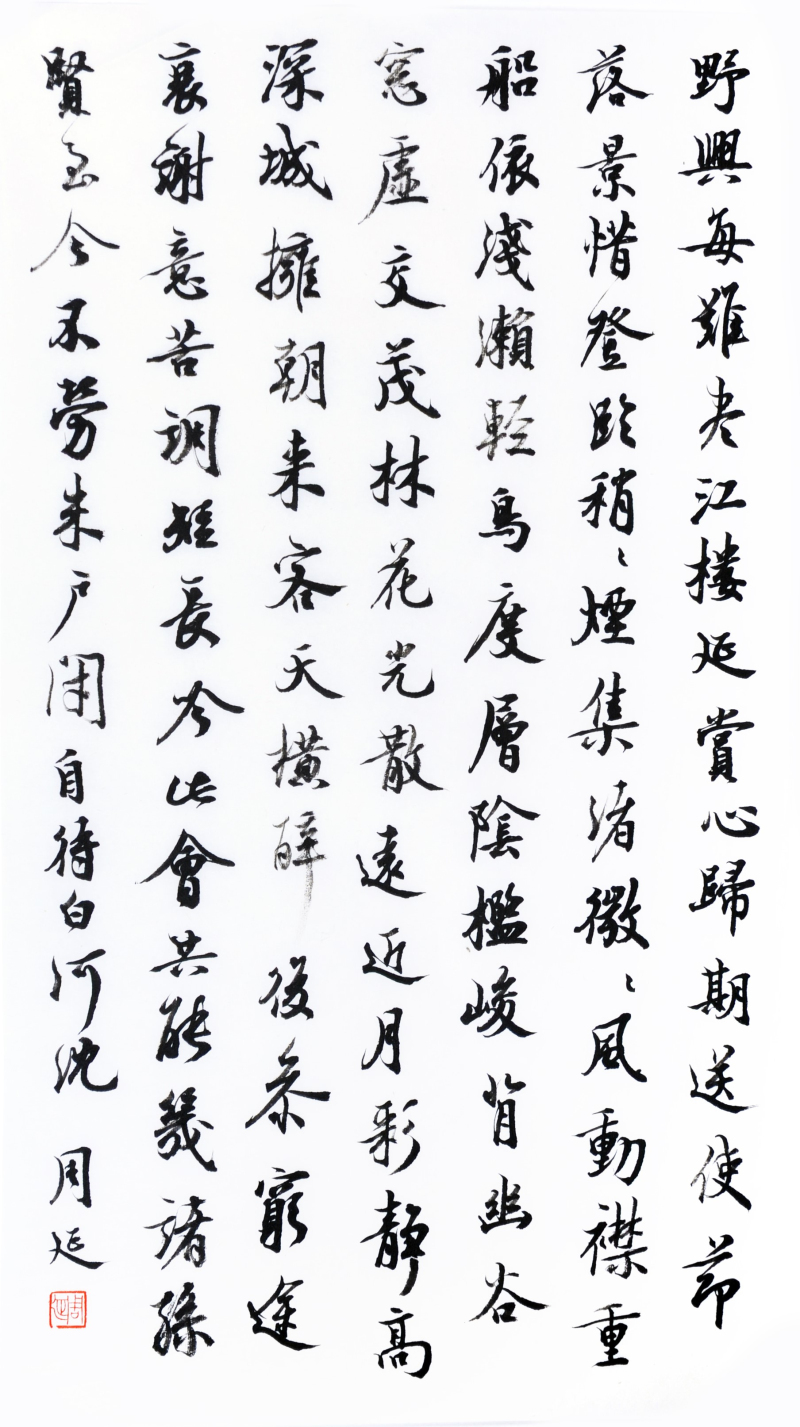 野興每難尽江樓延賞心歸期送使節
落景惜登臨稍〻煙集渚微〻風動襟重
船依淺瀨輕鳥度層陰檻峻背幽谷
窓虛交茂林花光散遠近月彩靜高
深城擁朝来客天橫醉後参窮途
衰謝意苦調短長吟此會共能幾諸孫
賢至今不勞朱戶閉自待白河沈 周延
周延